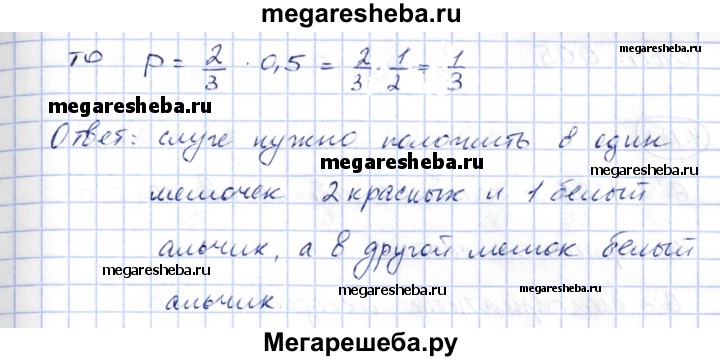 megaresheba.ru
то p = 2/3 · 0,5 = 2/3 · 1/2 = 1/3
megaresheba.ru
Ответ: слуге нужно положить в один
megaresheba.ru
megaresheba.ru
мешочек 2 красных и 1 белый
megaresheba.ru
альчик, а в другой мешок белый
megaresheba.ru
megaresheba.ru
альчик
Мегарешеба.ру